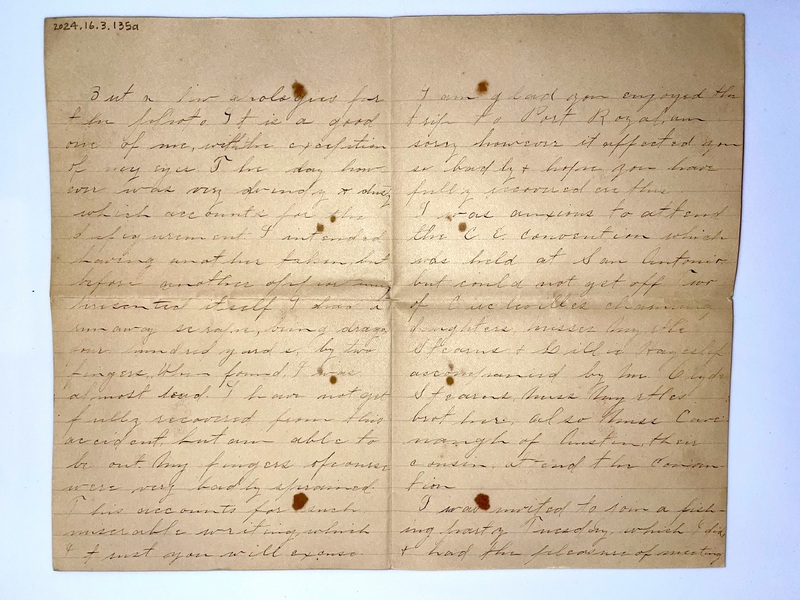 2024.16.3.135a
But a few apologies for
the photo. It is a good
one of me, with the exception
of my eyes The day how
ever was very windy & dusty
which accounts for the
disfigurement I intended
having another taken, but
before another opportunity
presented itself I had a
run away scrape, being drag
four hundred yards, by two
fingers. When found, I was
almost dead. I have not yet
fully recovered from this
accident, but am able to
be out. My fingers of course
were very badly sprained
This accounts for such
miserable writing, which
I trust you will excuse
I am glad you enjoyed the
trip to Port Royal, am
sorry however it affected you
so badly & hope you have
fully recovered ere this
I was anxious to attend
the C E convention which
was held at San Antonio
but could not get off Two
of charming
daughters, misses Myrtle
Stearns & Lillie
accompanied by Mr Clyde
Stearns, Miss Myrtles
brother, also Miss Cave
naugh of Austin, their
cousin, attend the Conven
tion
I was invited to join a fish-
ing party Tuesday, which I did
& had the pleasure of meeting